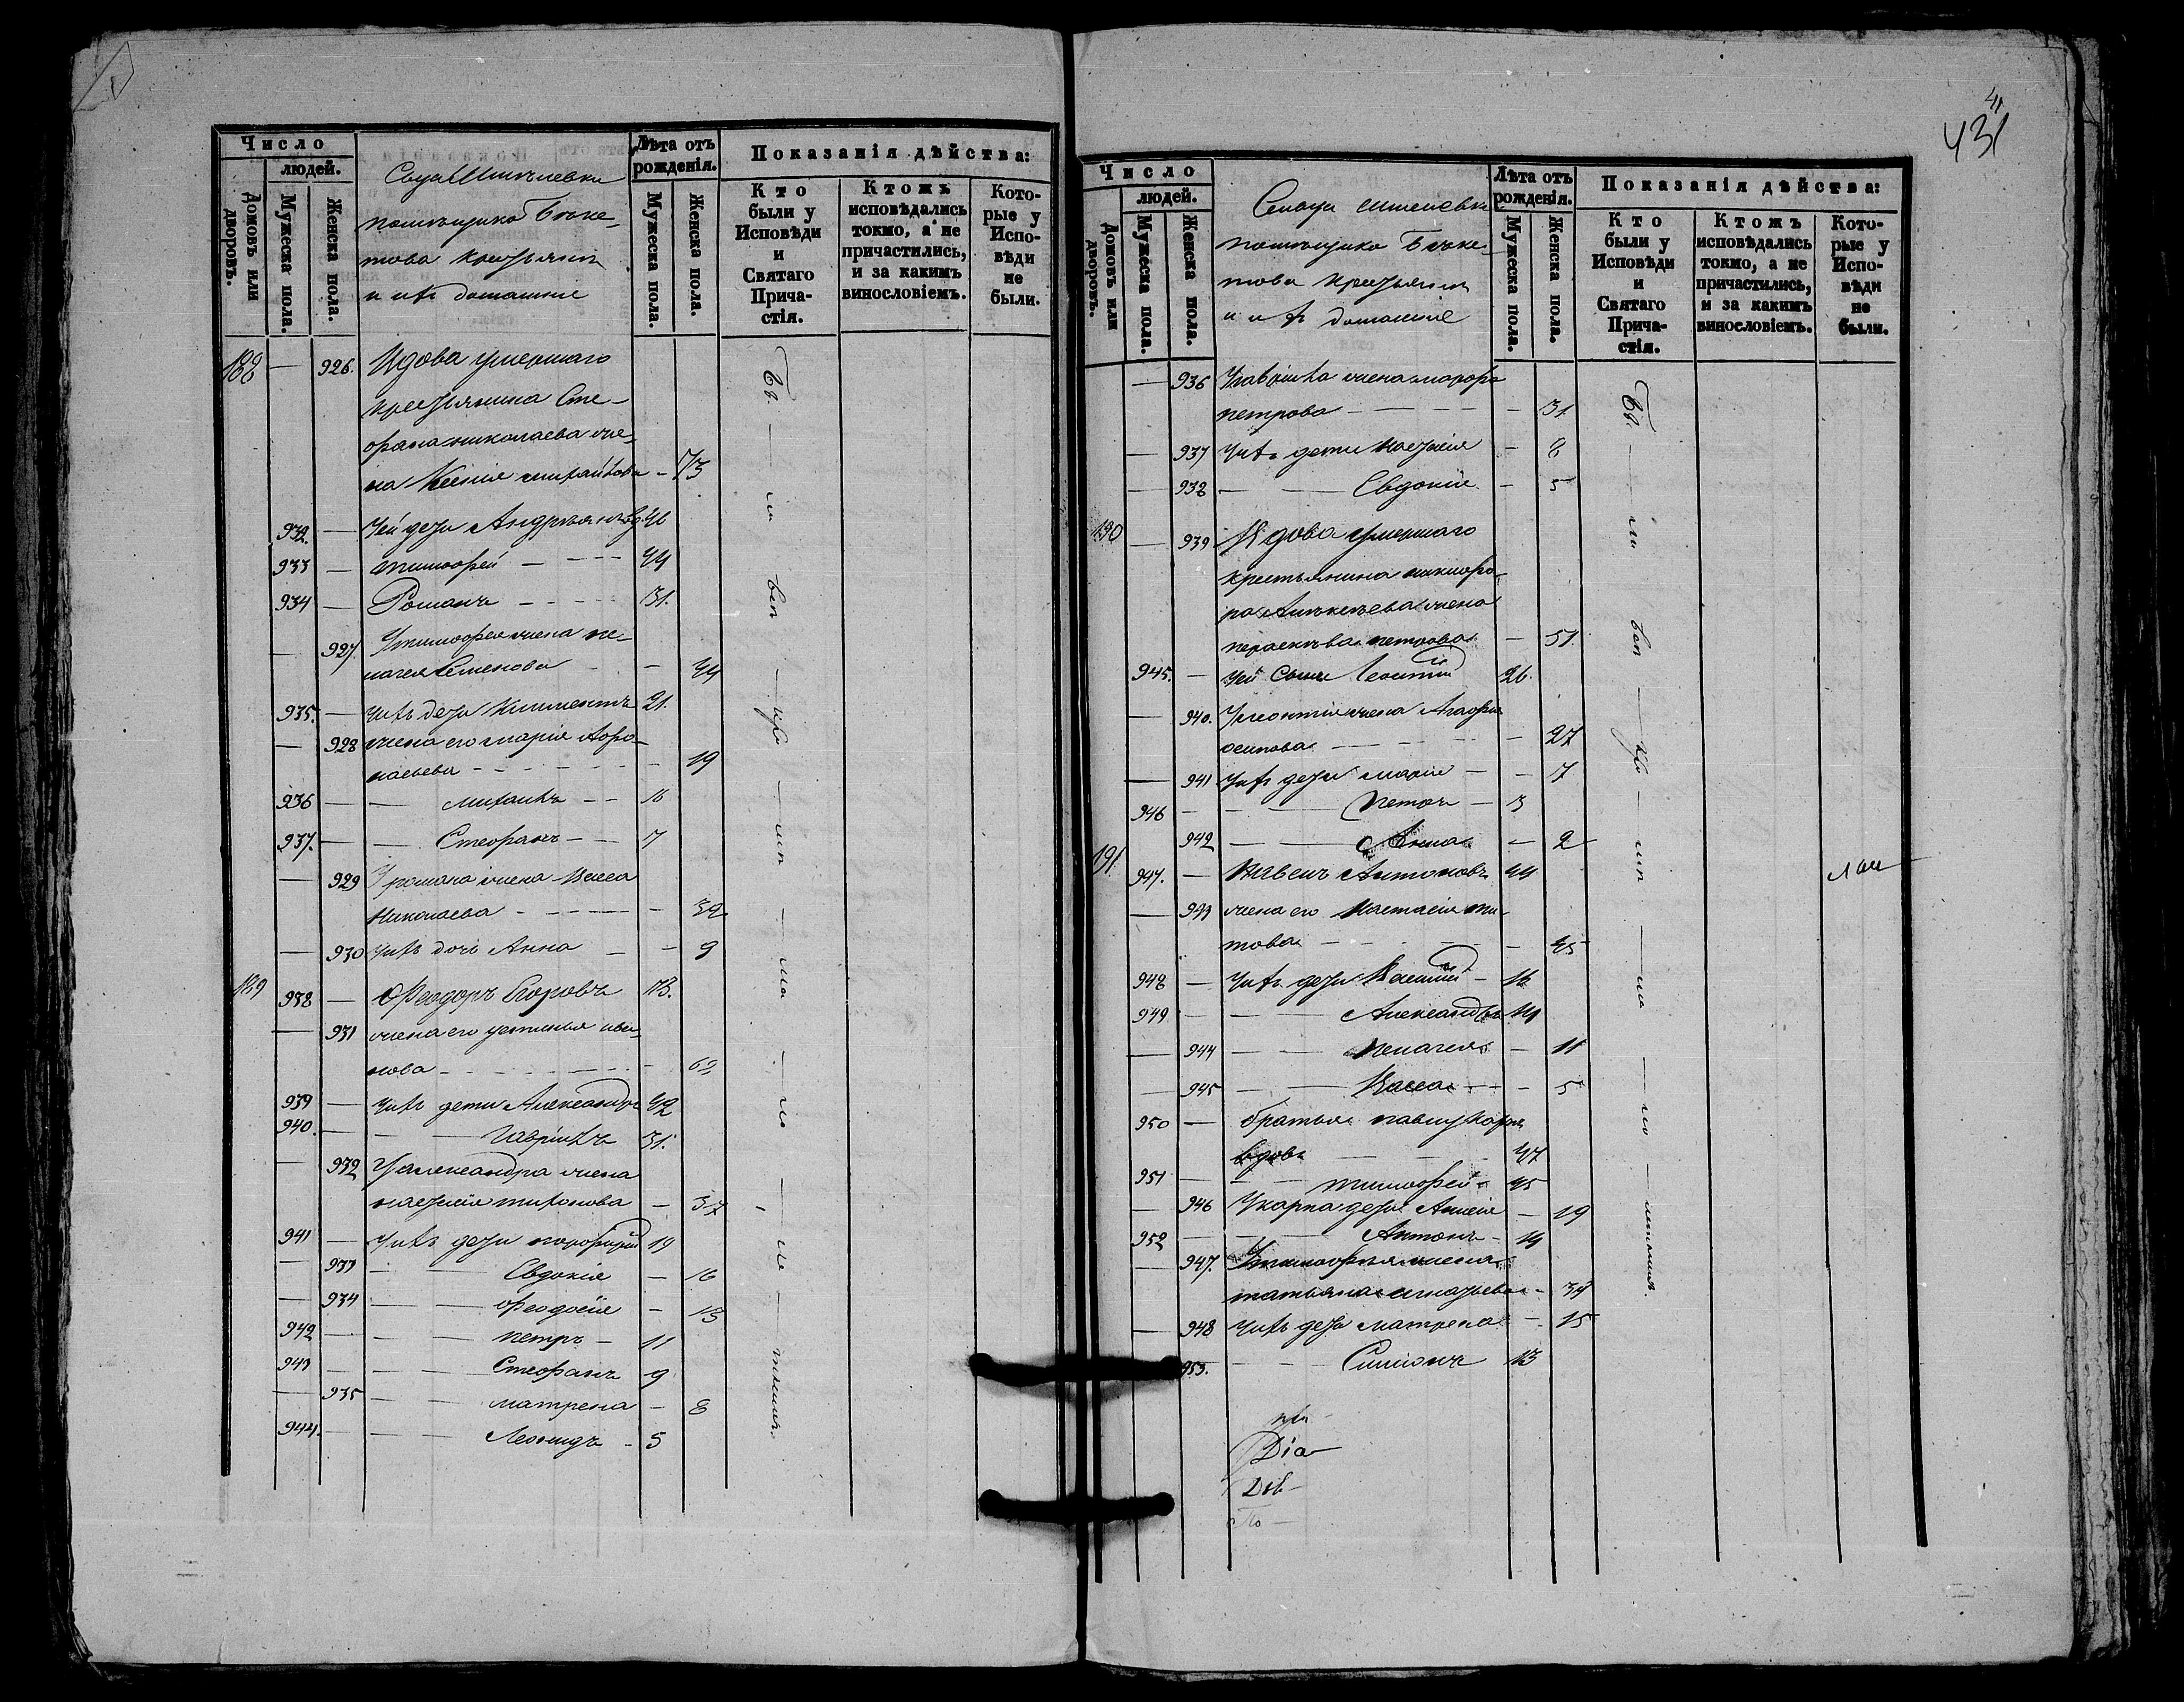 431
Число
людей.
Домовъ или дворовъ.
Мужеска пола.
Женска пола.
помѣщика Беке-
това крестьяне
и ихъ домашніе
Лѣта отъ рожденія.
Мужеска пола.
Женска пола.
Показанія дѣйства:
Кто были у Исповѣди и Святаго Прича-стія.
Ктожъ исповѣдались токмо, а не причастились, и за какимъ винословіемъ.
Кото-рые у Испо-вѣди не были.
188 — 926. Вдова умершаго
крестьянина Сте-
фана Николаева же-
на Ксенія - 73
932. — Ей дети Андреянъ вд. 46
933 — Тимофей - - - 44
934 — Романъ - - - 31.
— 927. У Тимофея жена Пе-
лагея Семенова - - 44
935. — У ихъ дети Климентъ 21.
— 928 жена его Марія Афо-
насьева - - - 19
936 — — Михаилъ - - 16
937. — — Стефанъ - - 7
— 929 У Романа жена Васса
Николаева - - - 32
— 930 У ихъ дочь Анна - - 9
189 938 — Феодоръ Егоровъ 73.
— 931 жена его Устинья Ива-
нова - - - 62
939 — У ихъ дети Александръ 42
940. — — Гавріилъ 31.
— 932 У Александра жена
Настасія Тихонова - 37
941 — У ихъ дети Порфирій 19
— 933 — Евдокія - 16
— 934 — Феодосія - 13
942 — — Петръ - 11
943 — — Стефанъ - 9
— 935 — Матрена - 8
944. — — Леонидъ - 5
Число
людей.
Домовъ или дворовъ.
Мужеска пола.
Женска пола.
помѣщика Беке-
това крестьяне
и ихъ домашніе
Лѣта отъ рожденія.
Мужеска пола.
Женска пола.
Показанія дѣйства:
Кто были у Исповѣди и Святаго Прича-стія.
Ктожъ исповѣдались токмо, а не причастились, и за какимъ винословіемъ.
Кото-рые у Испо-вѣди не были.
— 936 У Гавріила жена
Петрова - - - 31
— 937 У ихъ дети Настасія - 8
— 938 — Евдокія - 5
190 — 939 Вдова умершаго
крестьянина Никифо-
ра Алексѣева жена
Параскѣва Петрова - 51.
945. — Ей сынъ Леонтій 26.
— 940. У Леонтія жена Агафья
Осипова - - - 27
— 941 У ихъ дети Марія - - 7
946 — — Петръ - 3
— 942 — Анна - 2
191 947. — Павелъ Антоновъ 44
— 943 жена его Настасія Ти-
това - - - 45
948 — У ихъ дети Василій - 16
949 — — Александръ 14
— 944 — Пелагея - 11
— 945 — Васса - - 5
950 — братья Павлу Карпъ
вдовъ - 47
951 — — Тимофей - 45
— 946 У Карпа дети - 19
952 — — Антонъ - 14
— 947. У Тимофея жена
Татьяна Игнатьева - 34
— 948 У ихъ дети Матрена - 15
953. — — Симіонъ 13
Діа-